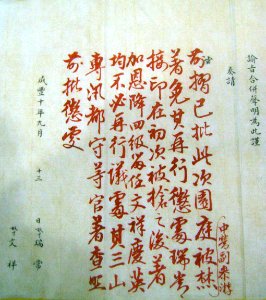 諭旨合併聲明為此謹
奏請
前摺已批此次園庭被焚
中營副參游
著免其再行懲處瑞常
接印在初次被搶之後著
加恩降四級留任文祥慶英
均不必再行議處其三山
專汛都守等官著查照
前批懲處
咸豐十年九月 十三 日 瑞常
文祥